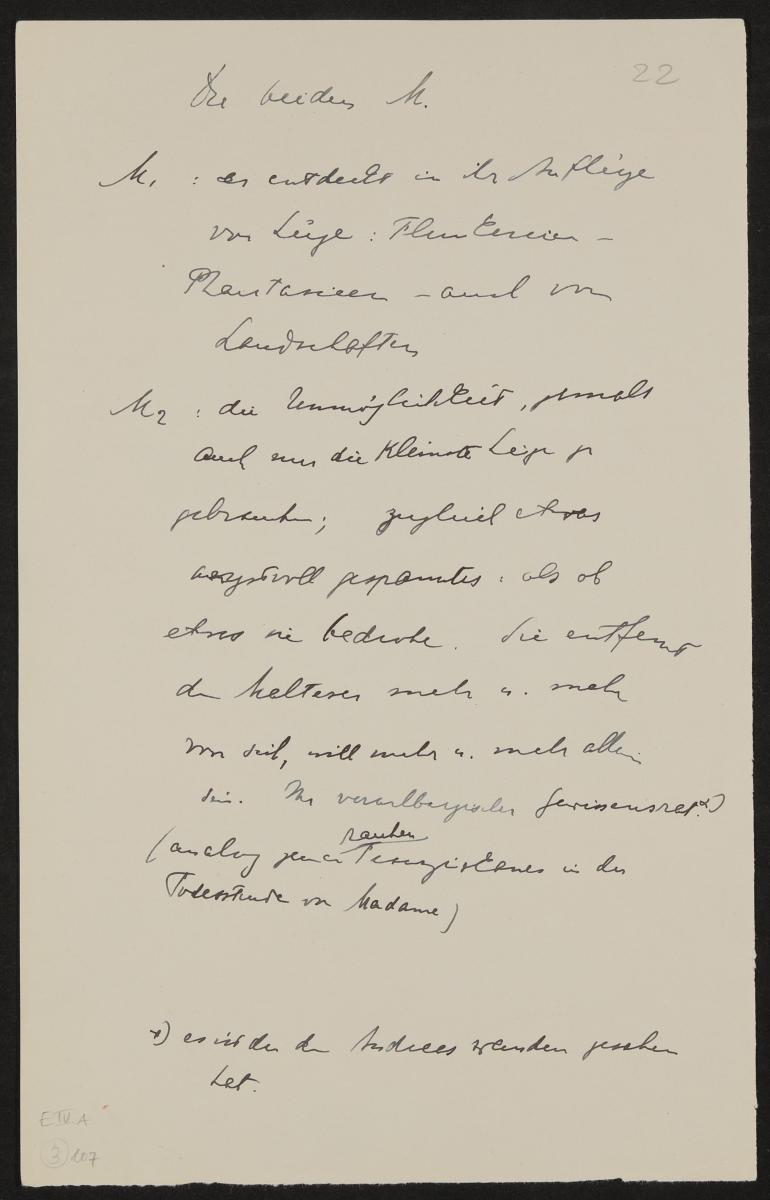 22
Die beiden M.
M1 : er entdeckt in ihr Anflüge
von Lüge : Flunkereien –
Phantasieen – auch von
Landschaften
M2 : die Unmöglichkeit, jemals
auch nur die kleinste Lüge zu
gebrauchen; zugleich etwas
angstvoll gespanntes : als ob
etwas sie bedrohe. Sie entfernt
den Malteser mehr u. mehr
von sich, will mehr u. mehr allein
sein. Ihr vorarlbergischer Gewissensrat.*)
(analog jener rauhen in der
Todesstunde von Madame)
*) es ist der den Andreas gesehen
hat.
E IV A
3 107